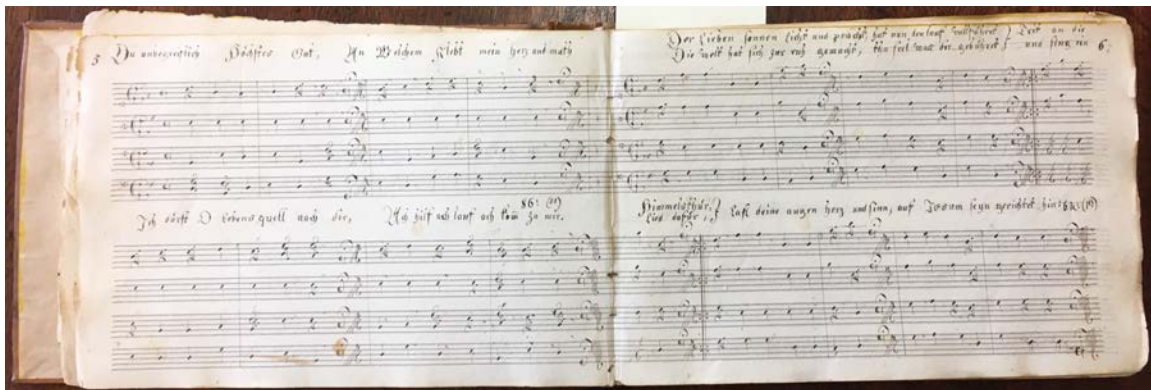 5 Du unbegreiflich Höchstes Gut, An Welchem Klebt mein herz und muth
Ich dürst O lebens quell nach dir, Ach hilf ach lauf ach kom zu mir.
86: (20)
Der lieben sonnen licht und pracht, hat nun den lauf vollführet Trit an die 6:
Die welt hat sich zur ruh gemacht, thu seel was dir gebühret und sing ein
Himmelsthür, laß deine augen herz und sinn, auf Jesum seyn gerichtet hin:
lied dafür,